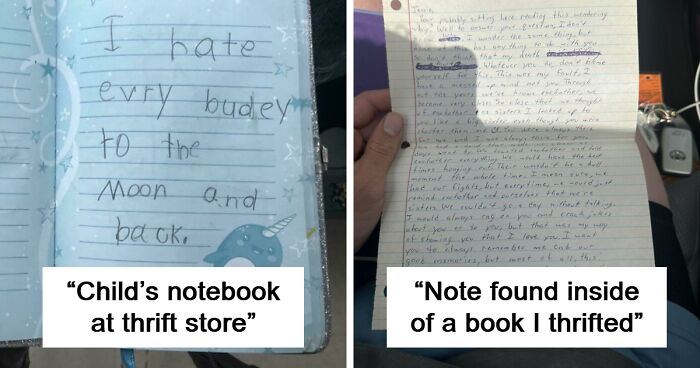 I hate
evry budey
to the
Moon and
back.
“Child’s notebook
at thrift store”
Jessie,
Your probably sitting here reading this wondering
why? Well to answer your question, I don't
I wonder the same thing, but
none of this has anything to do with you
So don't think that my death
Whatever you do, don't blame
yourself for this. This was my fault, I
have a messed up mind not you. Through
out the years we've known eachother, we
became very close. So close that we thought
of eachother as sisters. I looked up to
you like a big sister even though you were
shorter than me. You were always there
for me and I was always there for you.
days went by. We trusted eachother and told
eachother everything. We would have the best
times hanging out. There wouldn't be a dull
moment the whole time. I mean sure, we
had our fights, but everytime, we would just
remind eachother and ourselves that we're
sisters. We couldn't go a day without talking.
I would always rag on you and crack jokes
about you or to you, but that was my way
of showing you that I love you. I want
you to always remember me and our
good memories, but most of all, this
“Note found inside
of a book I thrifted”